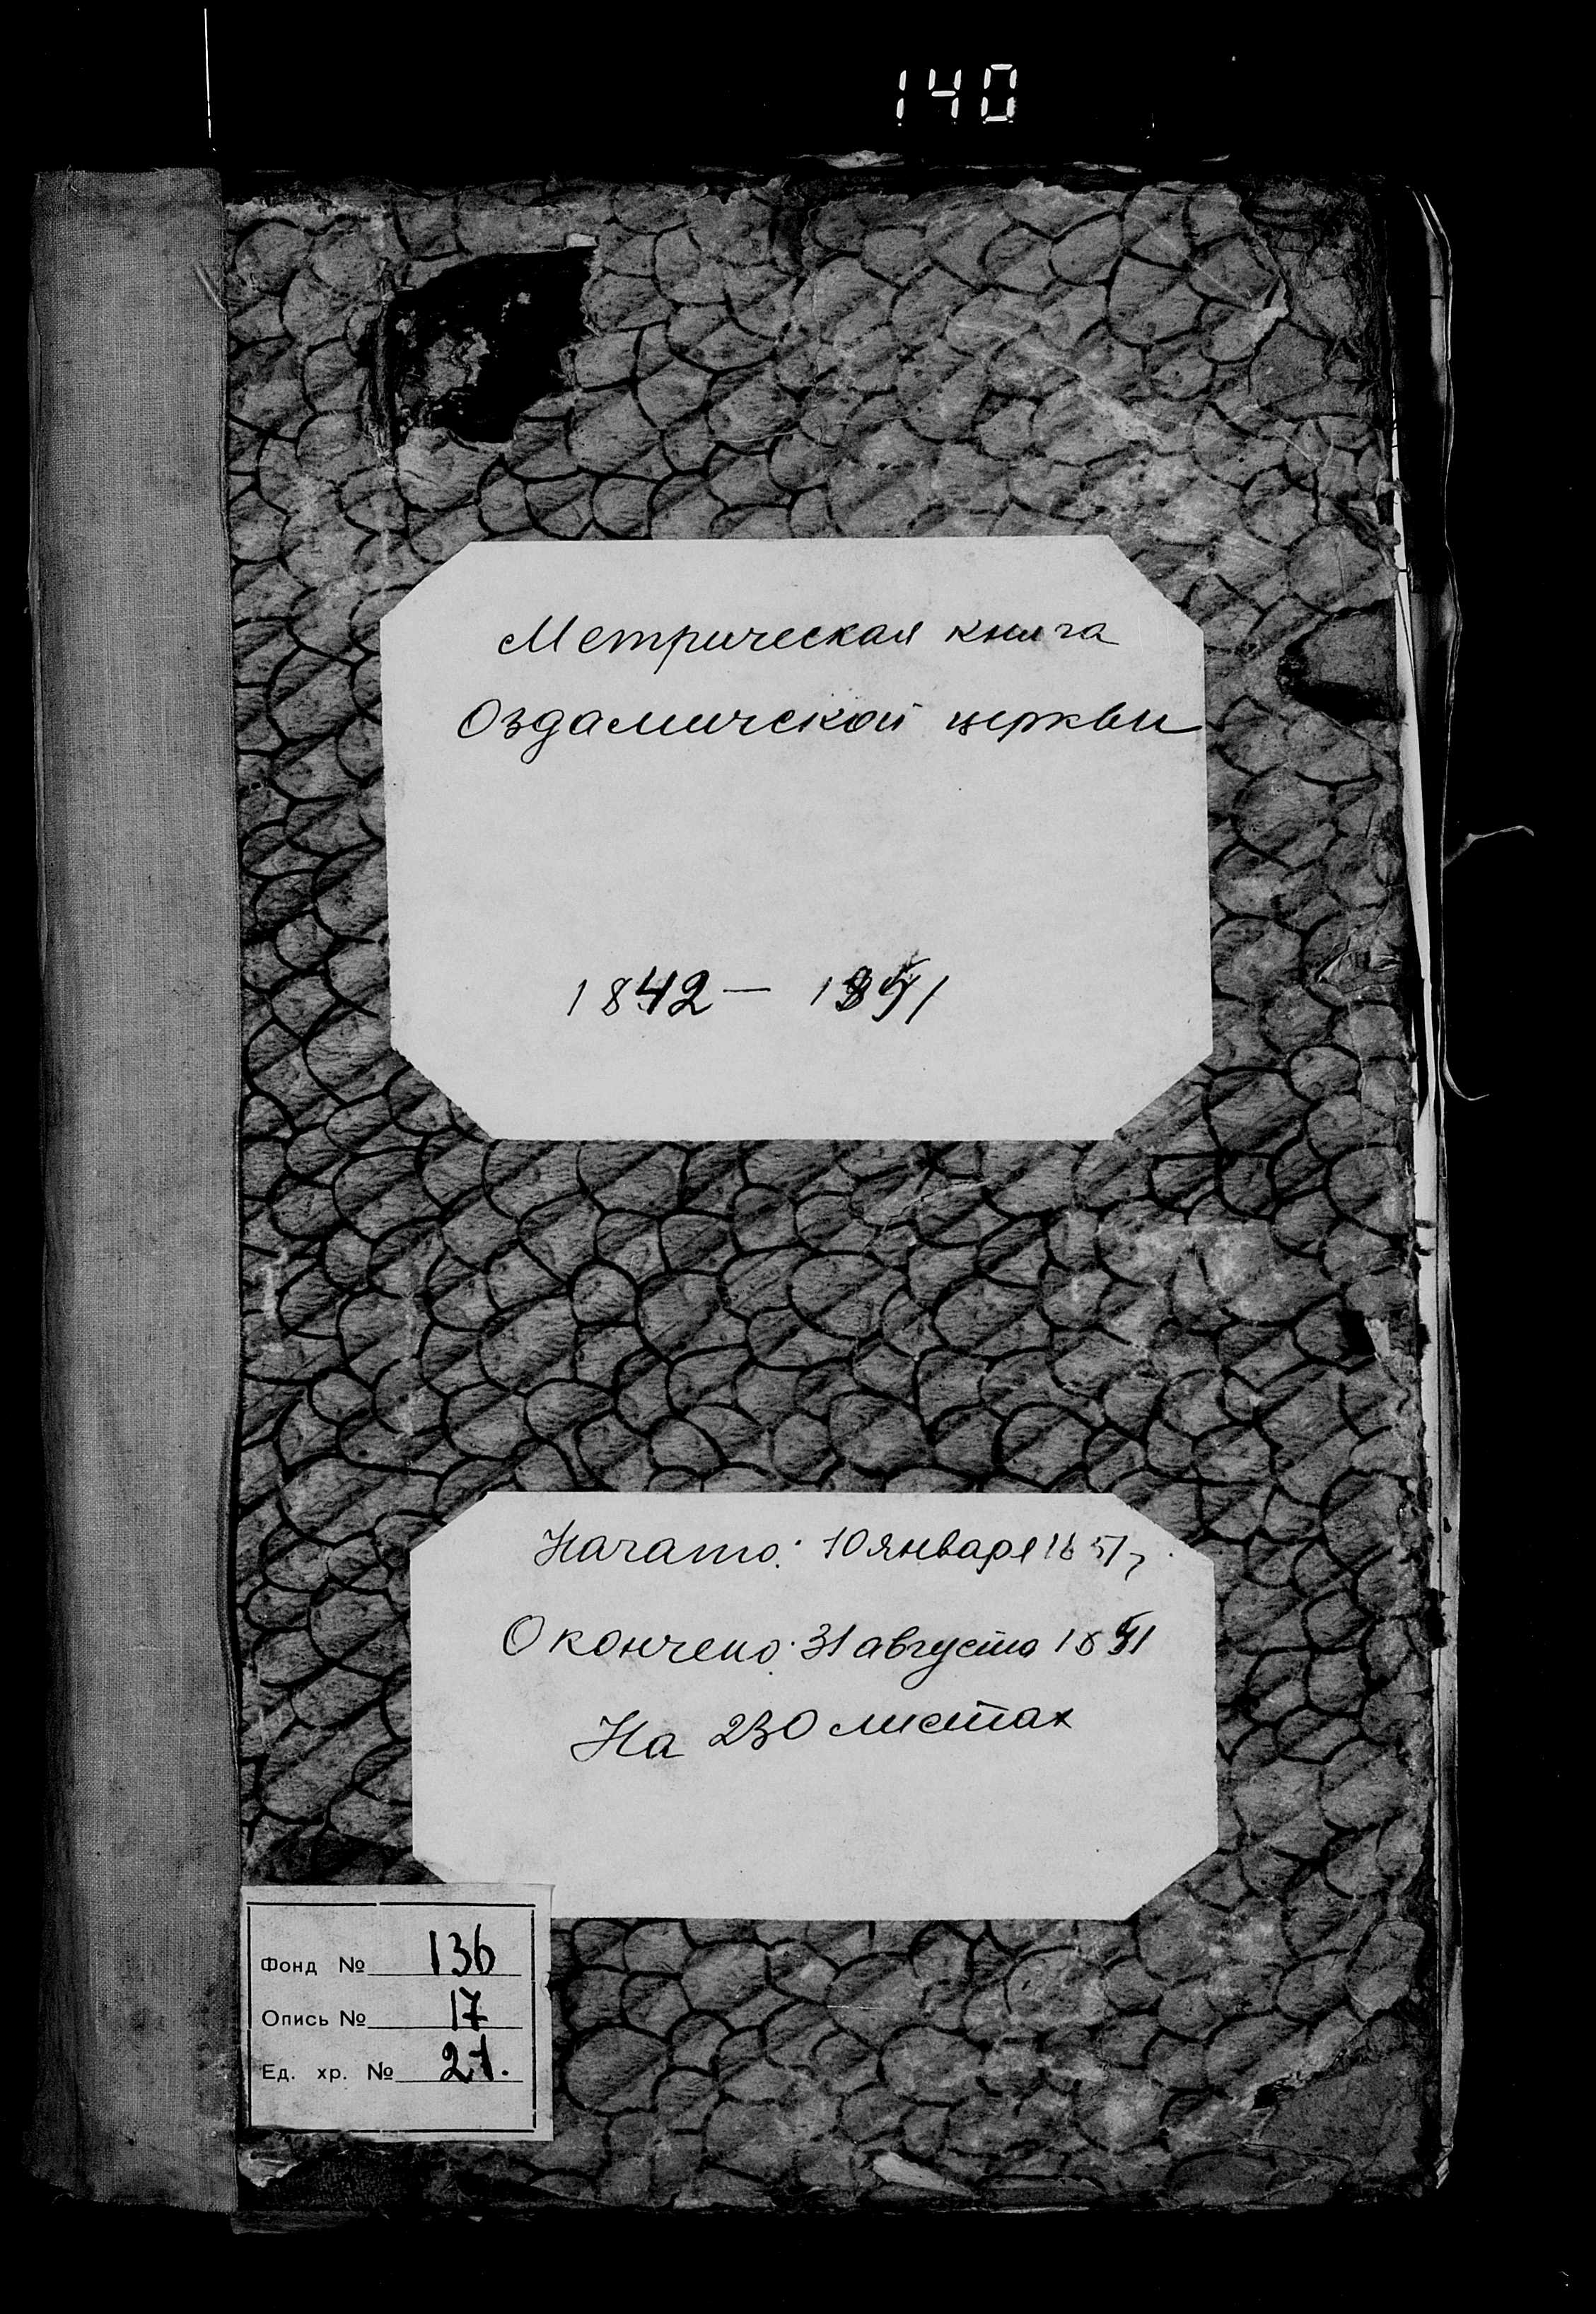 140
Метрическая книга
Оздамической церкви
1842 — 1851
Начато: 10 января
Окончено: 31 августа 1851
На 230 листах
Фонд № 136
Опись № 17
Ед. хр. № 21.